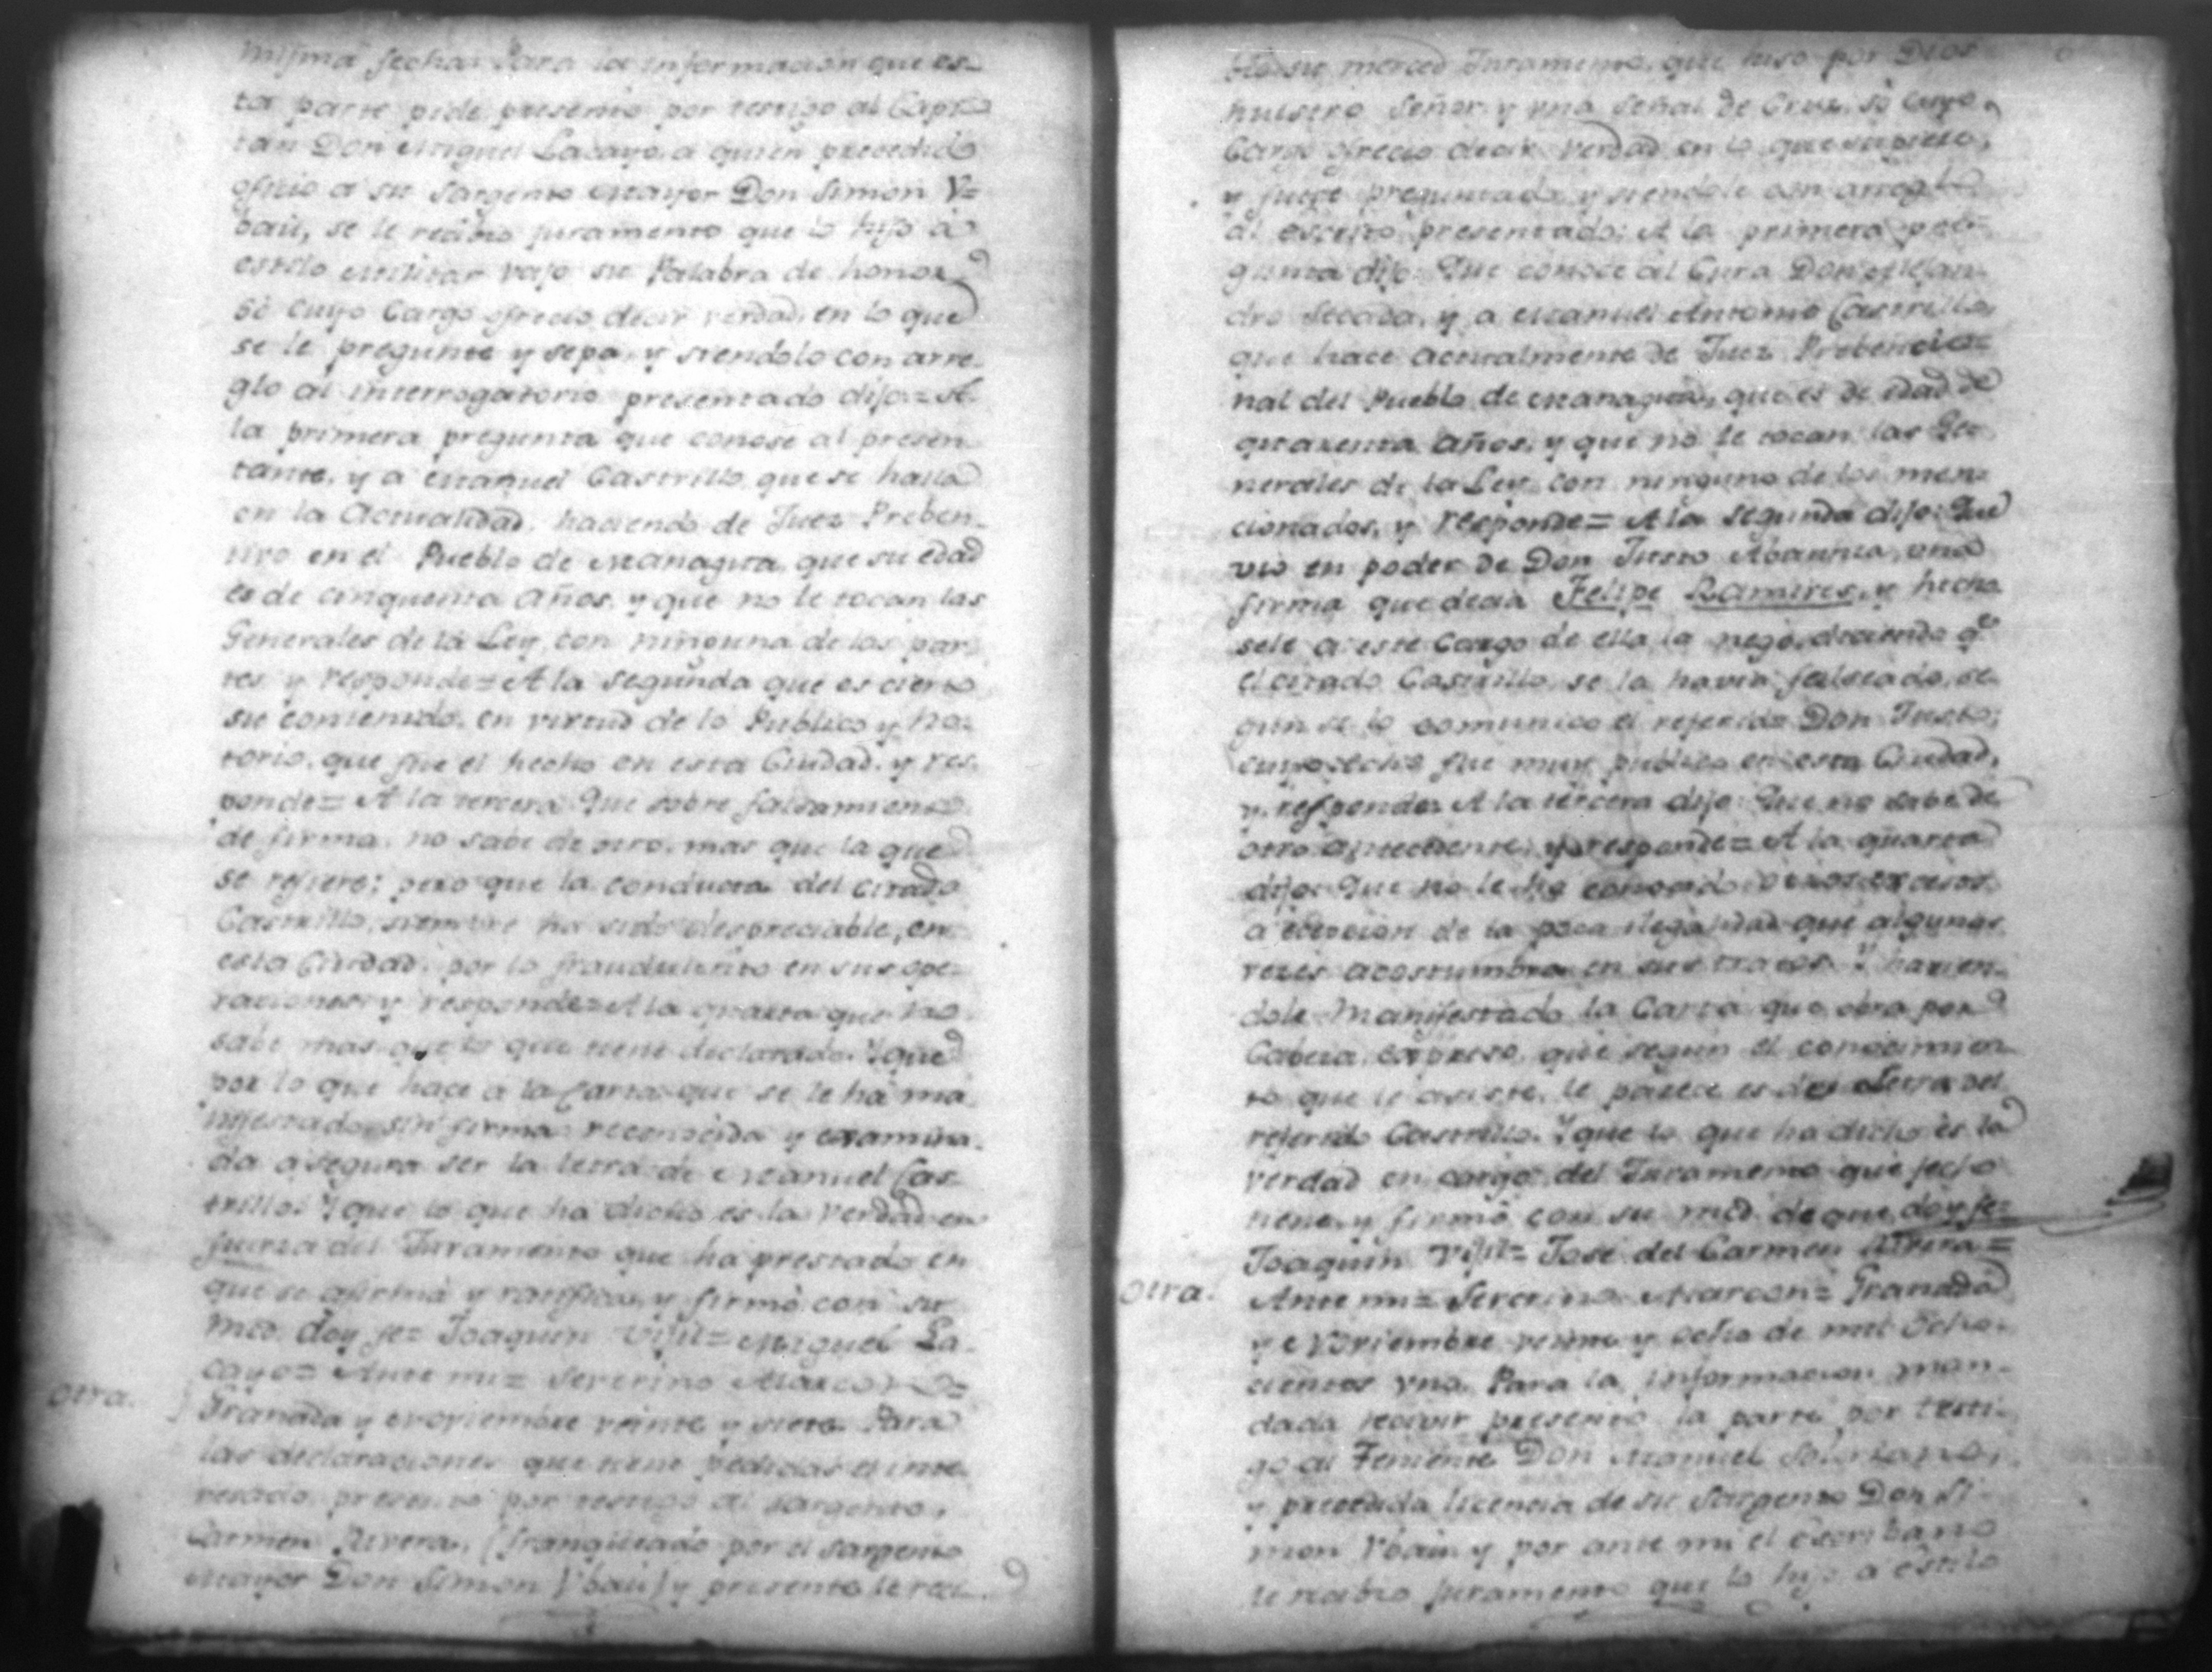 misma fecha: Para la informacion que es-
ta parte pide presentó por testigo al Capi-
tan Don Miguel Lacayo, a quien precedido
oficio a su Sargento Mayor Don Simon Y=
baú, se le recibio juramento que lo hiso á
estilo militar vajo su Palabra de honor
só cuyo Cargo ofrecio decir verdad, en lo que
se le pregunte y sepa, y siendolo con arre-
glo al interrogatorio presentado dijo = A
la primera pregunta que conose al presen-
tante, y a Manuel Castrillo, que se halla
en la Actualidad, haciendo de Juez Preben-
tivo en el Pueblo de Managua, que su edad
es de cinquenta Años, y que no le tocan las
Generales de la Ley con ninguna de las par-
tes y responde = A la segunda que es cierto
su contenido, en virtud de lo Publico y No-
torio, que fue el hecho en esta Ciudad, y res-
ponde = A la tercera Que sobre falsamiento
de firma, no sabe de otro, mas que la que
se refiere; pero que la conducta del citado
Castrillo, siempre ha sido despreciable, en
esta Ciudad, por lo fraudulento en sus ope-
raciones y responde = A la quarta que no
sabe mas que lo que tiene declarado. Y que
por lo que hace a la Carta que se le há ma-
nifestado sin firma reconocida y examina-
da asegura ser la letra de Manuel Cas-
trillo. Y que lo que ha dicho es la verdad en
fuerza del Juramento que ha prestado en
que se afirma y ratifica, y firmó con su
mrd. doy fe = Joaquin Vijil = Miguel La-
cayo = Ante mi = Severino Alarcon =
Otra. Granada y Noviembre veinte y siete. Para
las declaraciones que tiene pedidas el inte-
resado, presentó por testigo al Sargento,
Carmen Rivera, (franqueado por el Sargento
Mayor Don Simon Ybaú) y presente le reci-
bio su merced Juramento, que hiso por Dios
nuestro Señor y una señal de Cruz, só cuyo
Cargo ofrecio decir verdad en lo que supiere,
y fuese preguntado, y siendole con arreglo
al escrito presentado: A la primera pre-
gunta dijo: Que conoce al Cura Don Alejan-
dro Secada, y a Manuel Antonio Castrillo,
que hace actualmente de Juez Prebencio=
nal del Pueblo de Managua, que es de edad de
quarenta Años, y que no le tocan las Ge-
nerales de la Ley con ninguno de los men-
cionados, y responde = A la segunda dijo: Que
vio en poder de Don Justo Abaunza, una
firma que decia Felipe Ramires, y hecho
sele a este Cargo de ella la negó, diciendo q.e
el citado Castrillo, se la havia falseado, se-
gun se lo comunico el referido Don Justo;
cuyo echo fue muy publico en esta Ciudad,
y responde. A la tercera dijo: Que no sabe de
otro antecedente, y responde = A la quarta
dijo: Que no le ha conocido otros excesos
a ecepcion de la poca ilegalidad que algunas
vezes acostumbra en sus tratos. Y havien-
dole Manifestado la Carta que obra por
Cabeza, expreso, que segun el conocimien-
to que le asiste, le parece es de Letra del
referido Castrillo. Y que lo que ha dicho es la
verdad en cargo del Juramento que fecho
tiene, y firmó con su mrd. de que doy fe =
Joaquin Vijil = José del Carmen Rivera =
Otra. Ante mi = Severino Alarcon = Granada
y Noviembre veinte y ocho de mil ocho-
cientos uno. Para la informacion man-
dada recivir presentó la parte por testi-
go al Teniente Don Manuel
y precedida licencia de su Sargento Don Si-
mon Ybaú y por ante mi el escribano
le recibio juramento que lo hiso a estilo